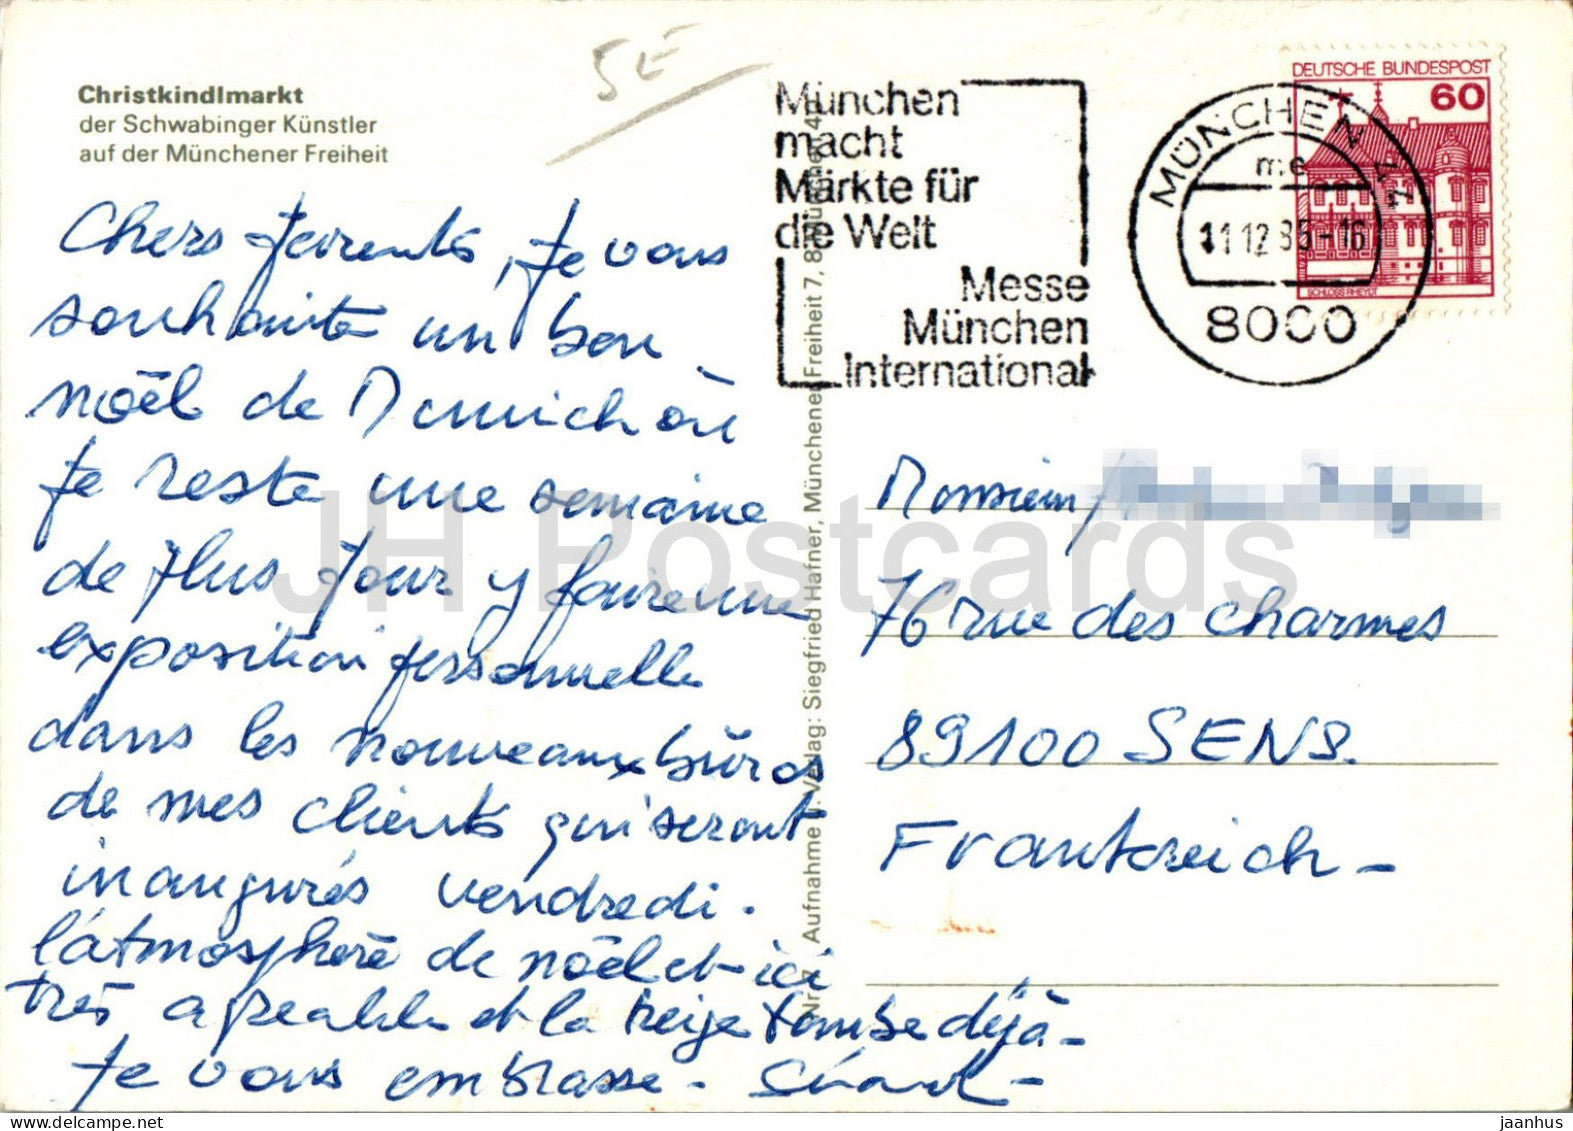 Christkindlmarkt
der Schwabinger Künstler
auf der Münchener Freiheit
5E
Chers Parents, Je vous
souhaite un bon
noël de Munich où
Je reste une semaine
de plus pour y faire une
exposition personnelle
dans les nouveaux büros
de mes clients qui seront
inaugurés vendredi.
l'atmosphère de noël est ici
très agréable et la neige tombe déjà -
Je vous embrasse -
München
macht
Märkte für
die Welt
Messe
München
International
MÜNCHEN
me
11.12.85-16
8000
DEUTSCHE BUNDESPOST
60
SCHLOSS RHEYDT
Aufnahme u. Verlag: Siegfried Hafner, Münchener Freiheit 7, 8 München 40
Monsieur
76 rue des charmes
89100 SENS.
Frankreich -
JH Postcards
jaanhus © www.delcampe.net